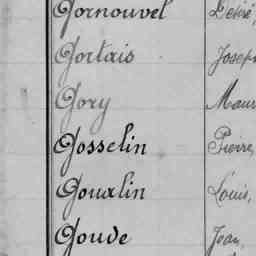 Gornouvel Désiré,
Gortais Joseph
Gory Maur
Gosselin Pierre,
Gouxlin Louis,
Goude Jean,